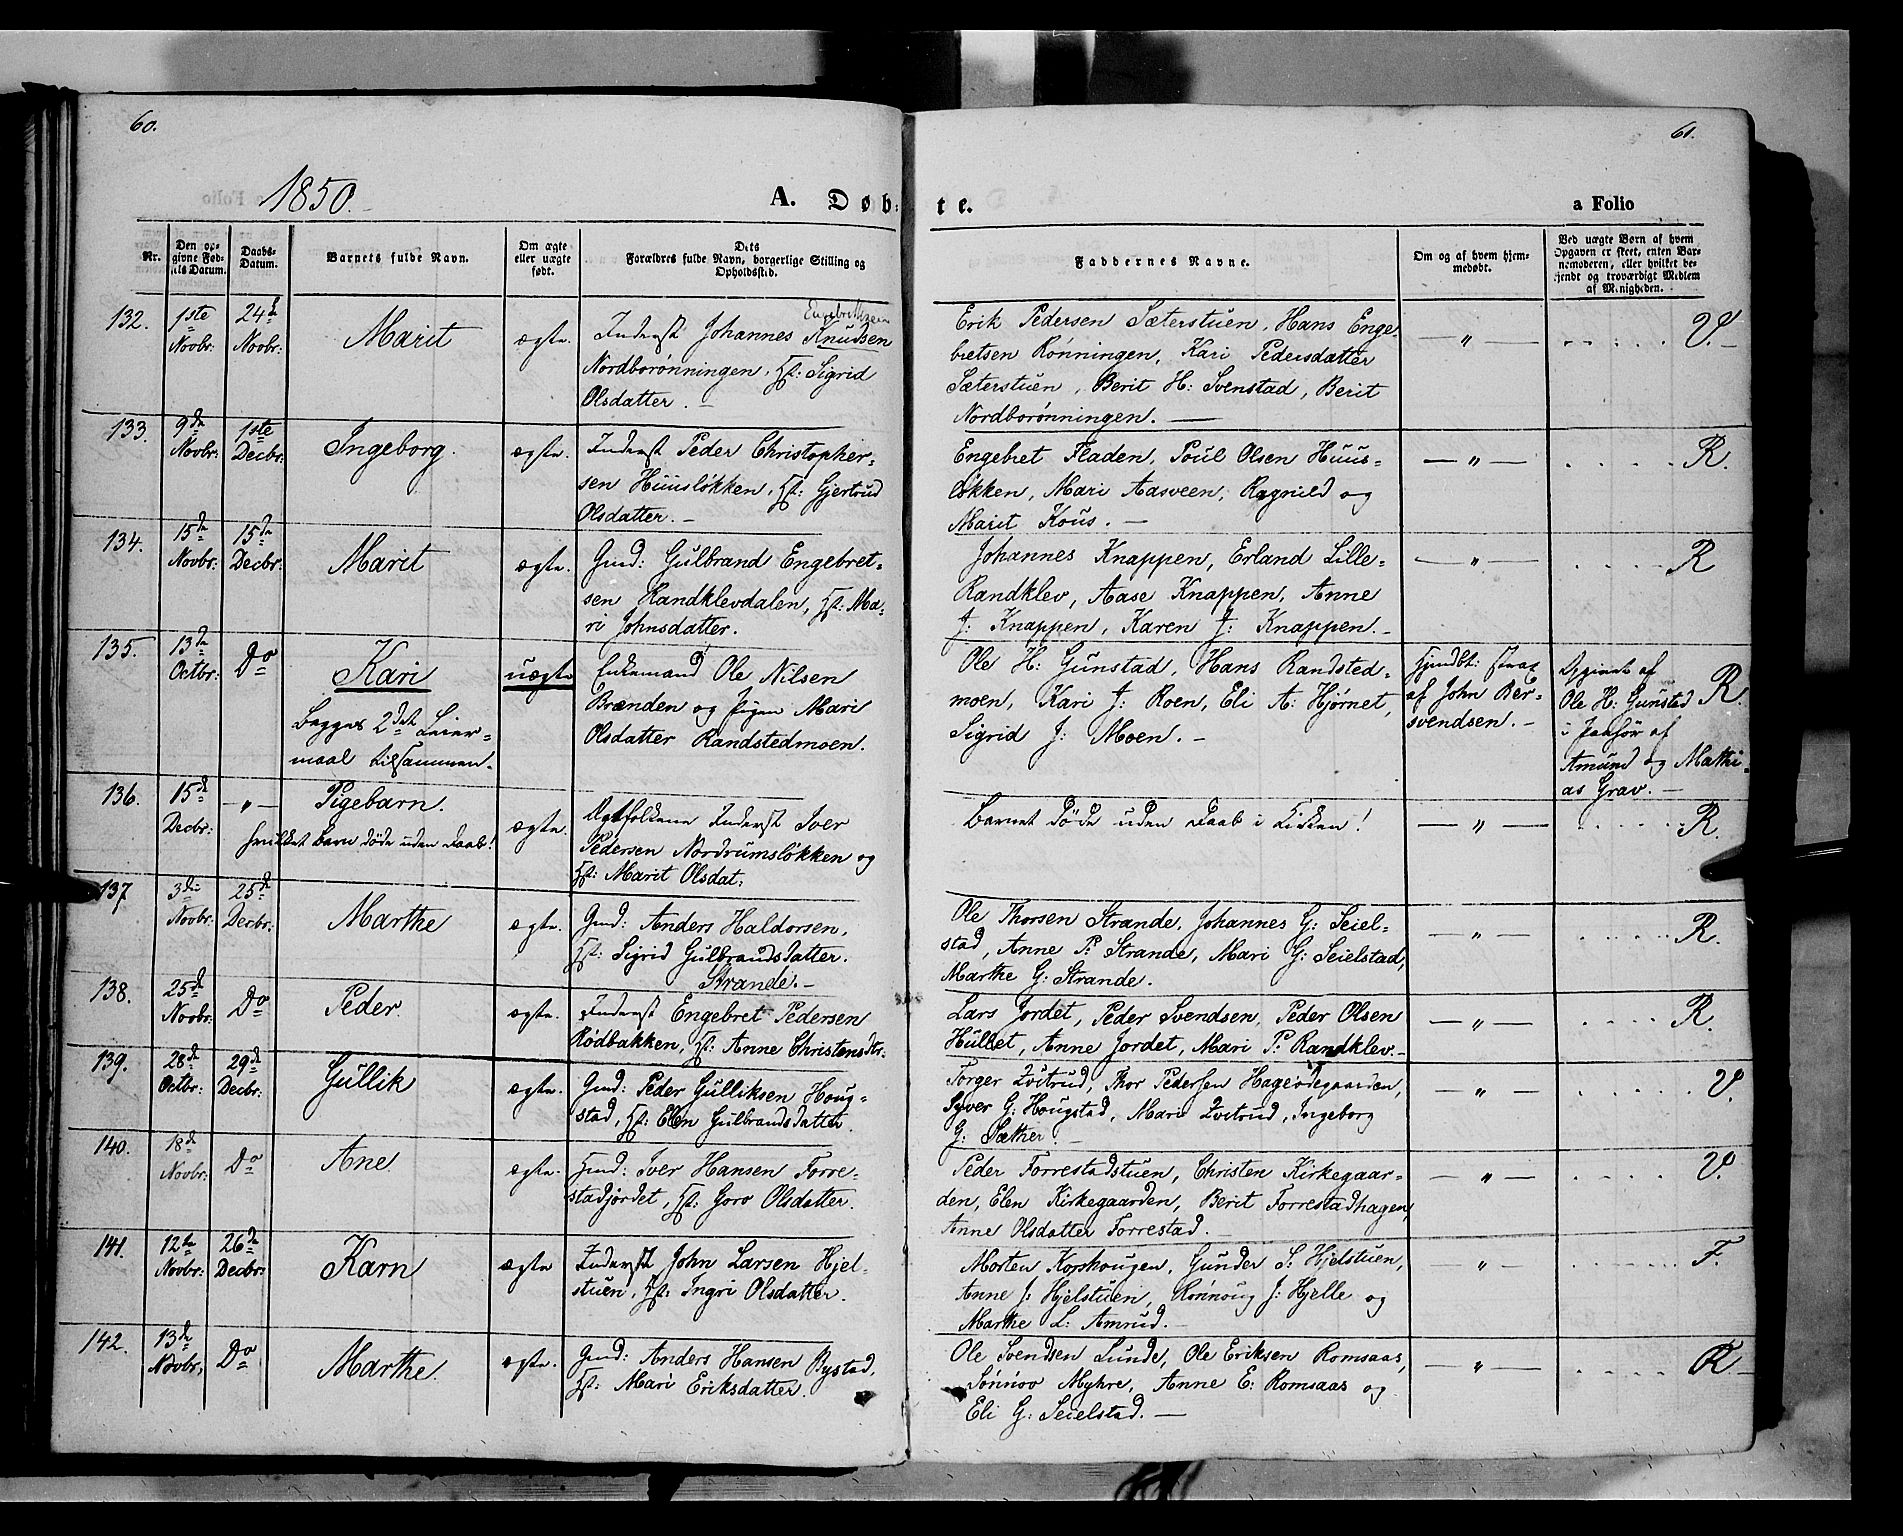 60.
61.
1850.
A. Døb-
te.
a Folio
Nr.
Den op-
givne Fød-
sels Datum.
Daabs-
Datum.
Barnets fulde Navn.
Om ægte
eller uægte
født.
Dets
Forældres fulde Navn, borgerlige Stilling og
Opholdssted.
Faddernes Navne.
Om og af hvem hjem-
medøbt.
Ved uægte Børn af hvem
Opgaven er skeet, enten Bar-
nemoderen, eller hvilket be-
kjendt og troværdigt Medlem
af Menigheden.
132.
1ste
Novbr:
24de
Novbr:
Marit
ægte.
Engebrethsen
Inderst Johannes Knudsen
Nordborønningen, Hst: Sigrid
Olsdatter. —
Erik Pedersen Sæterstuen, Hans Enge-
bretsen Rønningen, Kari Pedersdatter
Sæterstuen, Berit H: Svenstad, Berit
Nordborønningen. —
— " —
V. —
133.
9de
Novbr:
1ste
Decbr:
Ingeborg.
ægte.
Inderst Peder Christopher-
sen Huusløkken, Hst: Gjertrud
Olsdatter. —
Engebret Fladen, Poul Olsen Huus-
løkken, Mari Aasveen, Ragnild og
Marit Kous. —
— " —
R.
134.
15de
Novbr:
15de
Decbr:
Marit
ægte.
Gmd: Gulbrand Engebret-
sen Randklevdalen, Hst: Ma-
ri Johnsdatter.
Johannes Knappen, Erland Lille-
Randklev, Aase Knappen, Anne
J: Knappen, Karen J: Knappen. —
— " —
R
135.
13de
Octbr:
Do
Kari
Begges 2det Leier-
maal tilsammen.
uægte
Enkemand Ole Nilsen
Brænden og Pigen Mari
Olsdatter Randstedmoen.
Ole H: Gunstad, Hans Randsted-
moen, Kari J: Roen, Eli A: Hjørnet,
Sigrid J: Moen. —
Hjmdbt: strax
af John Ber-
svendsen. —
Opgivet af
Ole H: Gunstad
i Paahør af
Amund og Mathi-
as Grav. —
R.
136.
15de
Decbr:
— " —
Pigebarn.
hvilket Barn døde uden Daab!
ægte.
Ægtfolkene Inderst Iver
Pedersen Nordrumsløkken og
Hst: Marit Olsdat:
Barnet døde uden Daab i Kirken!
— " —
R.
137
3die
Novbr:
25de
Decbr:
Marthe
ægte.
Gmd: Anders Haldorsen,
Hst: Sigrid Gulbrandsdatter.
Strande. —
Ole Thorsen Strande, Johannes G: Seiel-
stad, Anne P: Strande, Mari G: Seielstad,
Marthe G: Strande.
— " —
R.
138.
25de
Novbr:
Do
Peder
ægte.
Inderst Engebret Pedersen
Rødbakken, Hst: Anne Christensdtr:
Lars Jordet, Peder Svendsen, Peder Olsen
Hullet, Anne Jordet, Mari P: Randklev. —
— " —
R.
139.
28de
Octbr:
29de
Decbr:
Gullik
ægte.
Gmd: Peder Gulliksen Houg-
stad, Hst: Elen Gulbrandsdatter.
Torger Qvitrud, Thor Pedersen Hageødegaarden,
Syver G: Hougstad, Mari Qvitrud, Ingeborg
G: Sæther. —
"
V.
140.
18de
Novbr:
Do
Ane
ægte.
Hmd: Iver Hansen Forre-
stadjordet, Hst: Goro Olsdatter.
Peder Forrestadstuen, Christen Kirkegaar-
den, Elen Kirkegaarden, Berit Forrestadhagen,
Anne Olsdatter Forrestad. —
— " —
V.
141.
12te
Novbr:
26de
Decbr:
Karn
ægte
Inderst John Larsen Hjel-
stuen, Hst: Ingri Olsdatter.
Morten Korshougen, Gunder S: Hjelstuen,
Anne J: Hjelstuen, Rønnoug J: Hjelle og
Marthe L: Amrud. —
— " —
F.
142.
13de
Novbr:
Do
Marthe.
ægte.
Gmd: Anders Hansen Rystad,
Hst: Mari Eriksdatter.
Ole Svendsen Lunde, Ole Eriksen Romsaas,
Sønnov Myhre, Anne E: Romsaas og
Eli G: Seielstad. —
— " —
R.